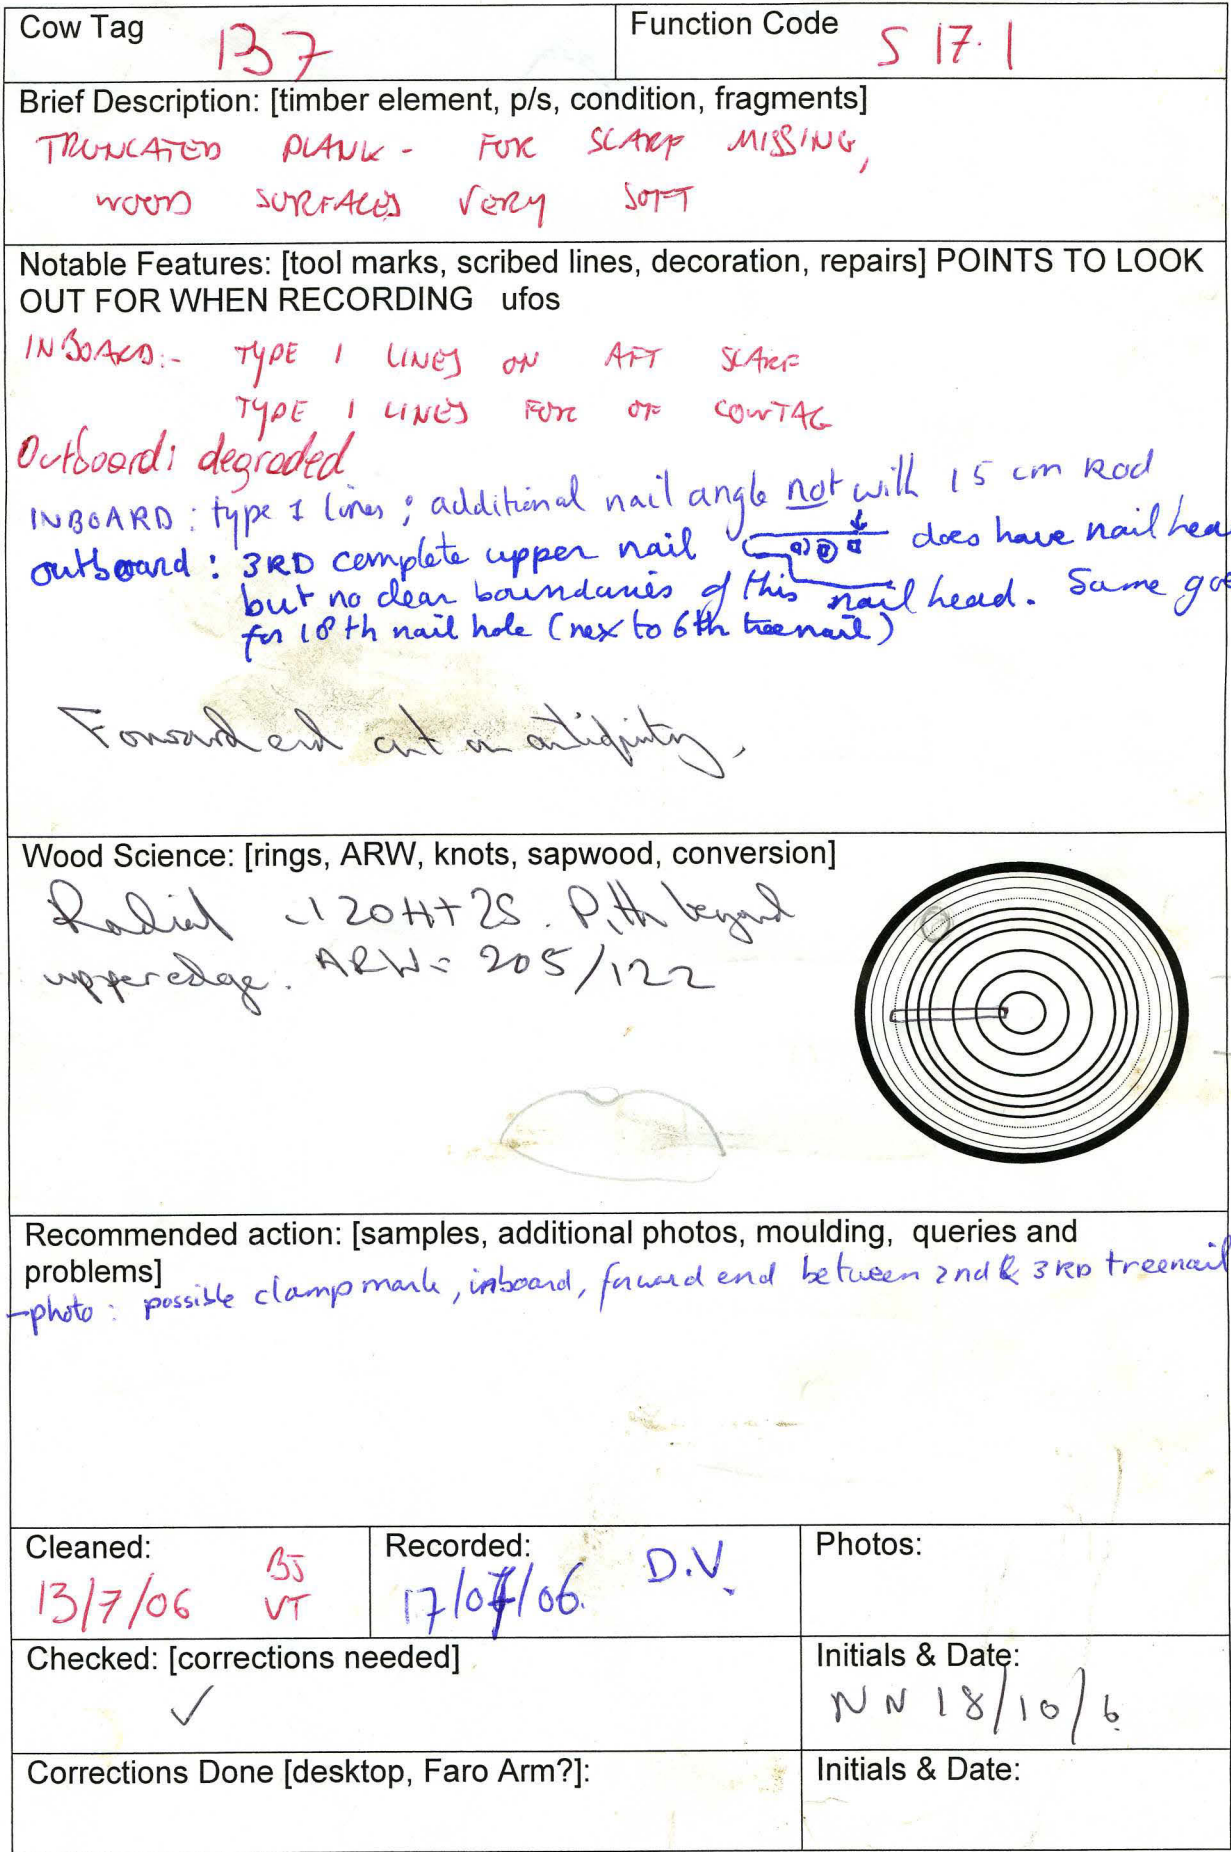 Cow Tag 137
Function Code S 17.1
Brief Description: [timber element, p/s, condition, fragments]
TRUNCATED PLANK - FOR SCARF MISSING,
WOOD SURFACES VERY SOFT
Notable Features: [tool marks, scribed lines, decoration, repairs] POINTS TO LOOK
OUT FOR WHEN RECORDING ufos
INBOARD:- TYPE 1 LINES ON AFT SCARF
TYPE 1 LINES FOR OF COWTAG
Outboard: degraded
INBOARD: type 1 lines; additional nail angle not with 15 cm Rod
outboard: 3RD complete upper nail does have nail hea
but no clear boundaries of this nail head. Same goe
for 18th nail hole (nex to 6th treenail)
Forward end cut in antiquity.
Wood Science: [rings, ARW, knots, sapwood, conversion]
Radial 120H+2S. Pith beyond
upper edge. ARW= 205/122
Recommended action: [samples, additional photos, moulding, queries and
problems]
-photo: possible clamp mark, inboard, forward end between 2nd & 3RD treenail
Cleaned: 13/7/06 BJ VT
Recorded: 17/07/06. D.V.
Photos:
Checked: [corrections needed] ✓
Initials & Date: NN 18/10/6
Corrections Done [desktop, Faro Arm?]:
Initials & Date: